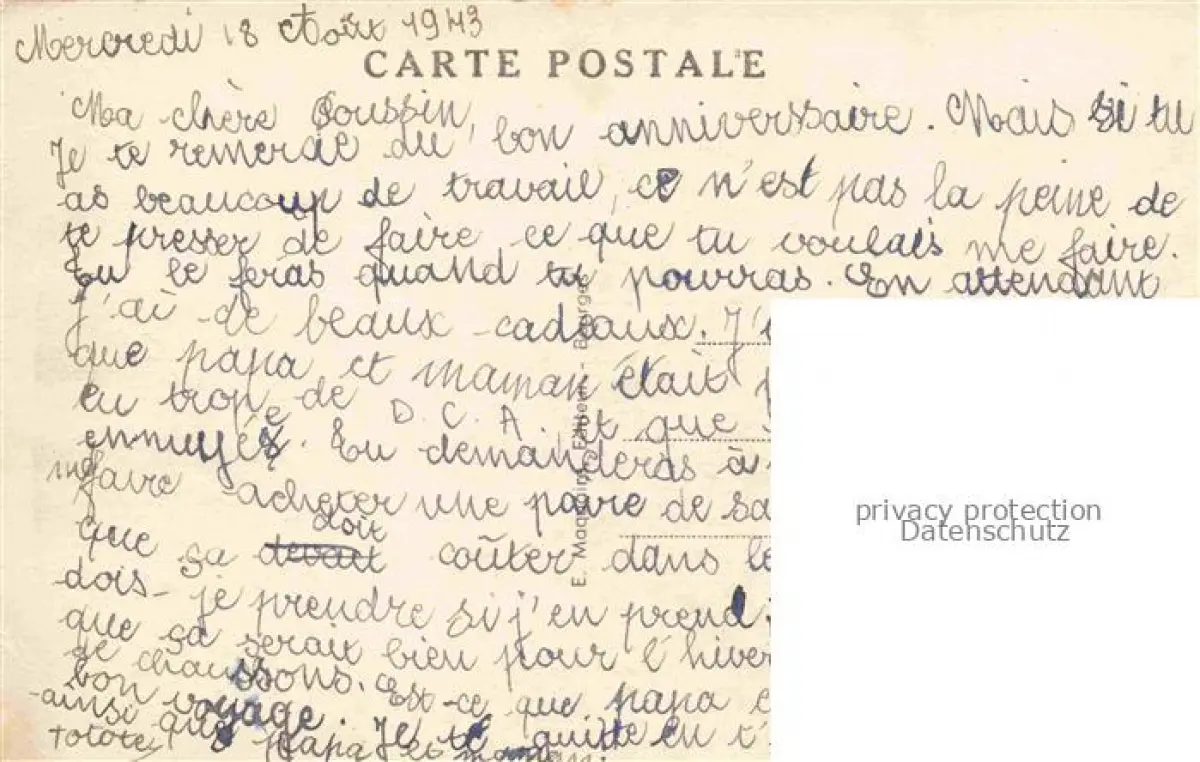 Mercredi 18 Août 1943
CARTE POSTALE
Ma chère Poussin,
Je te remercie du bon anniversaire. Mais si tu
as beaucoup de travail, ce n'est pas la peine de
te presser de faire ce que tu voulais me faire.
Tu le feras quand tu pourras. En attendant
j'ai de beaux cadeaux. J'
que papa et maman était
eu trop de D.C.A. et que
ennuyée. Tu demanderas à
me faire acheter une paire de sa
que ça devait doit coûter dans le
dois-je prendre si j'en prend
que ça serait bien pour l'hiver
de chaussons. Est-ce que papa
bon voyage. Je te quitte en t'
ainsi que papa et maman.
Totote
E. Maquaire, Editeur - Bourges
privacy protection
Datenschutz